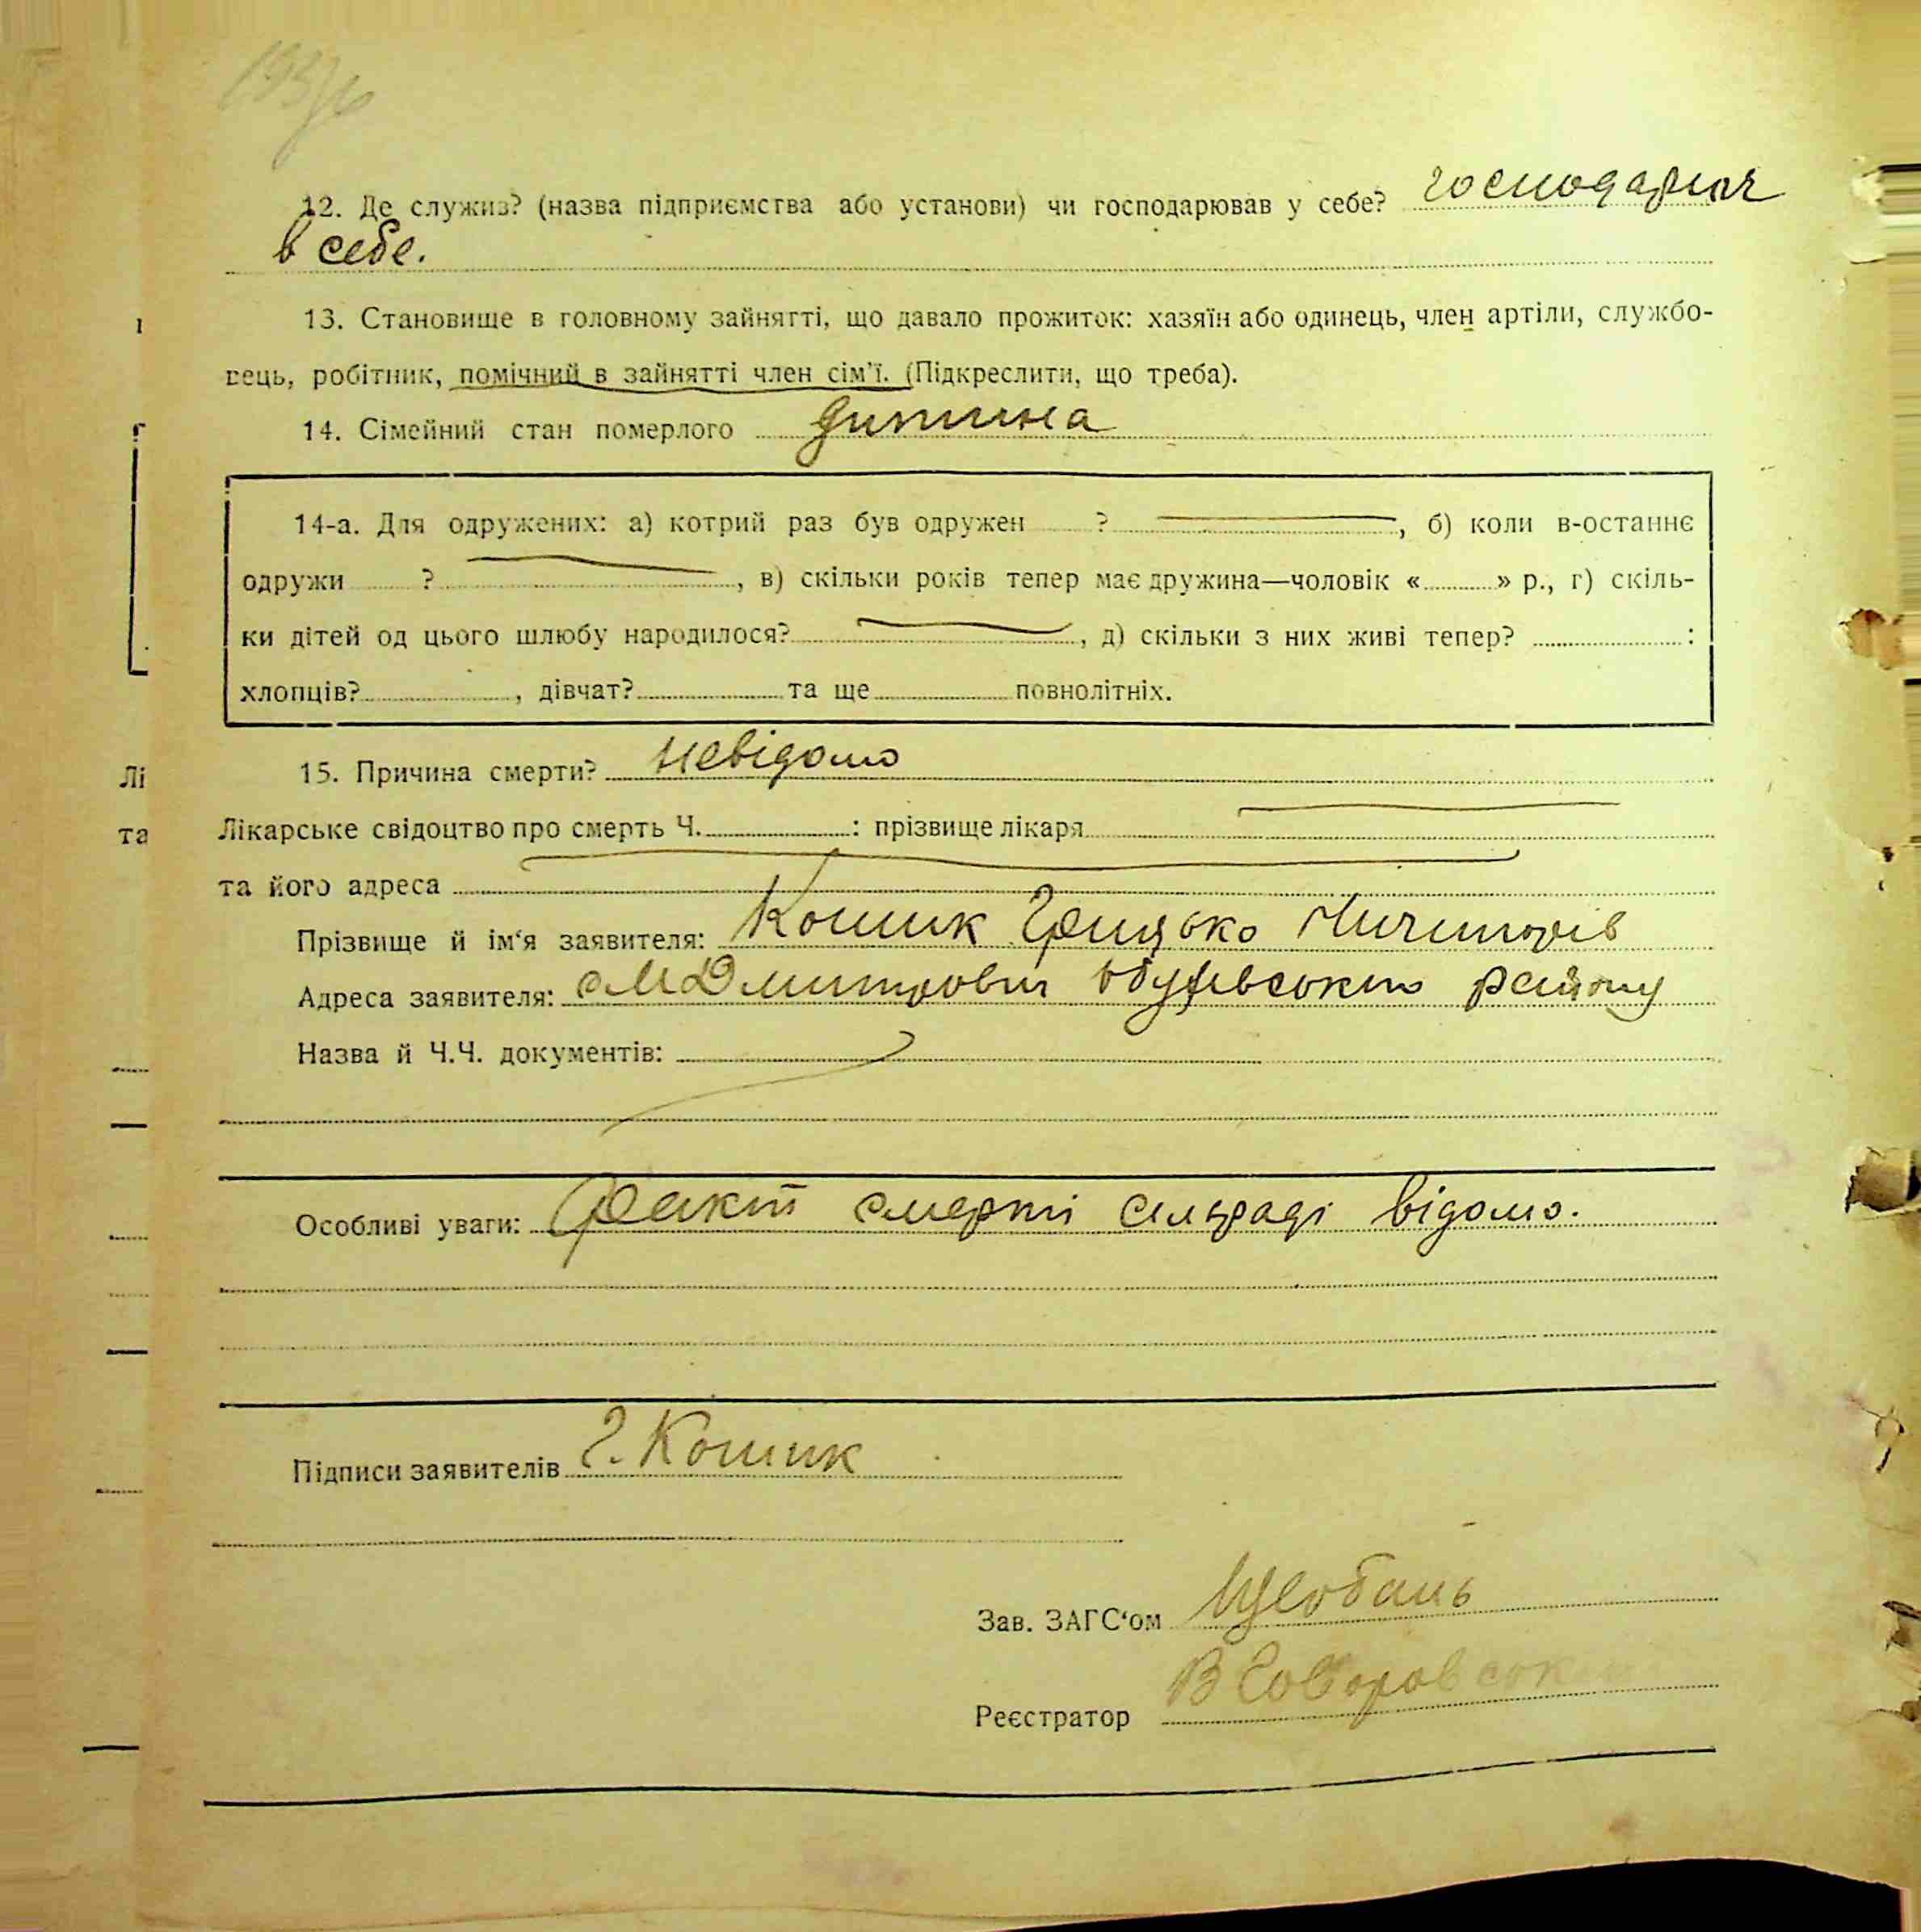 12. Де служив? (назва підприємства або установи) чи господарював у себе? господарюч
в себе.
13. Становище в головному зайнятті, що давало прожиток: хазяїн або одинець, член артіли, службо-
вець, робітник, помічний в зайнятті член сім'ї. (Підкреслити, що треба).
14. Сімейний стан померлого дитина
14-а. Для одружених: а) котрий раз був одружен ? , б) коли в-останнє
одружи ? , в) скільки років тепер має дружина—чоловік « » р., г) скіль-
ки дітей од цього шлюбу народилося? , д) скільки з них живі тепер? :
хлопців? , дівчат? та ще повнолітніх.
15. Причина смерти? невідомо
Лікарське свідоцтво про смерть Ч. : прізвище лікаря
та його адреса
Прізвище й ім'я заявителя: Кошик Грицько
Адреса заявителя: Дмитрович Обухівського району
Назва й Ч.Ч. документів:
Особливі уваги: Факт смерті сільраді відомо.
Підписи заявителів Г. Кошик
Зав. ЗАГС'ом
Реєстратор В Говоровськ